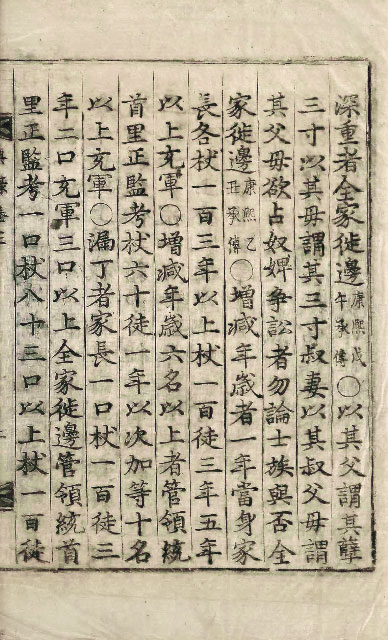 深重者全家徙邊康熙戊午承傳○以其父謂其孼
三寸以其母謂其三寸叔妻以其叔父母謂
其父母欲占奴婢爭訟者勿論士族與否全
家徙邊康熙乙丑承傳○增減年歲者一年當身家
長各杖一百三年以上杖一百徒三年五年
以上充軍○增減年歲六名以上者管領統
首里正監考杖六十徒一年以次加等十名
以上充軍○漏丁者家長一口杖一百徒三
年二口充軍三口以上全家徙邊管領統首
里正監考一口杖八十三口以上杖一百徒